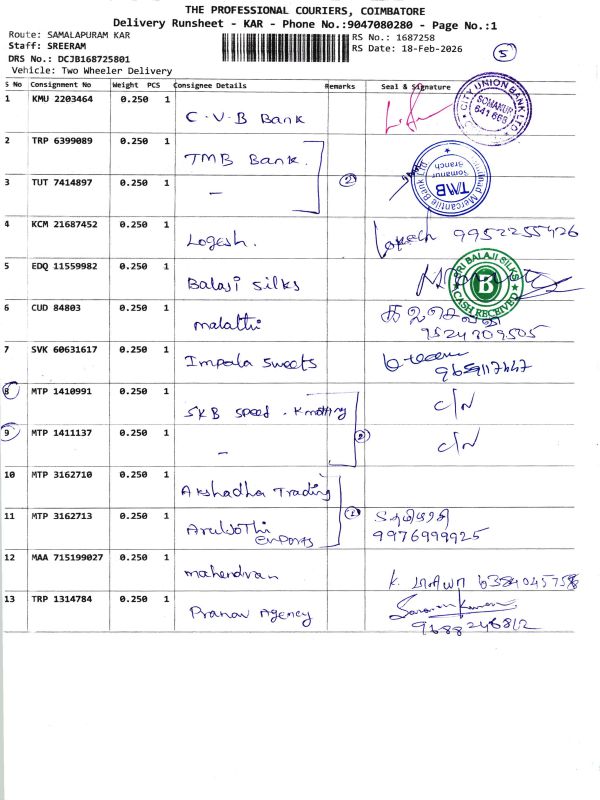 THE PROFESSIONAL COURIERS, COIMBATORE
Delivery Runsheet - KAR - Phone No.:9047080280 - Page No.:1
Route: SAMALAPURAM KAR
RS No.: 1687258
Staff: SREERAM
RS Date: 18-Feb-2026
5
DRS No.: DCJB168725801
Vehicle: Two Wheeler Delivery
S No Consignment No Weight PCS Consignee Details Remarks Seal & Signature
1 KMU 2203464 0.250 1 C.V.B Bank
CITY UNION BANK LTD
SOMANUR
641 668
2 TRP 6399089 0.250 1 TMB Bank.
Mercantile Bank Ltd
TMB
Somanur
Branch
3 TUT 7414897 0.250 1 - 2
4 KCM 21687452 0.250 1 Logesh. 9952255426
5 EDQ 11559982 0.250 1 Balaji silks
SRI BALAJI SILKS
B
CASH RECEIVED
6 CUD 84803 0.250 1 malathi
9524309505
7 SVK 60631617 0.250 1 Impala sweets
8 MTP 1410991 0.250 1 SKB speed. C/N
9 MTP 1411137 0.250 1 - 2 C/N
10 MTP 3162710 0.250 1 Akshadha Trading
11 MTP 3162713 0.250 1 ArulJothi
Exports
9976999925
12 MAA 715199027 0.250 1 mahendran
K.
13 TRP 1314784 0.250 1 Pranav Agency
9688246812